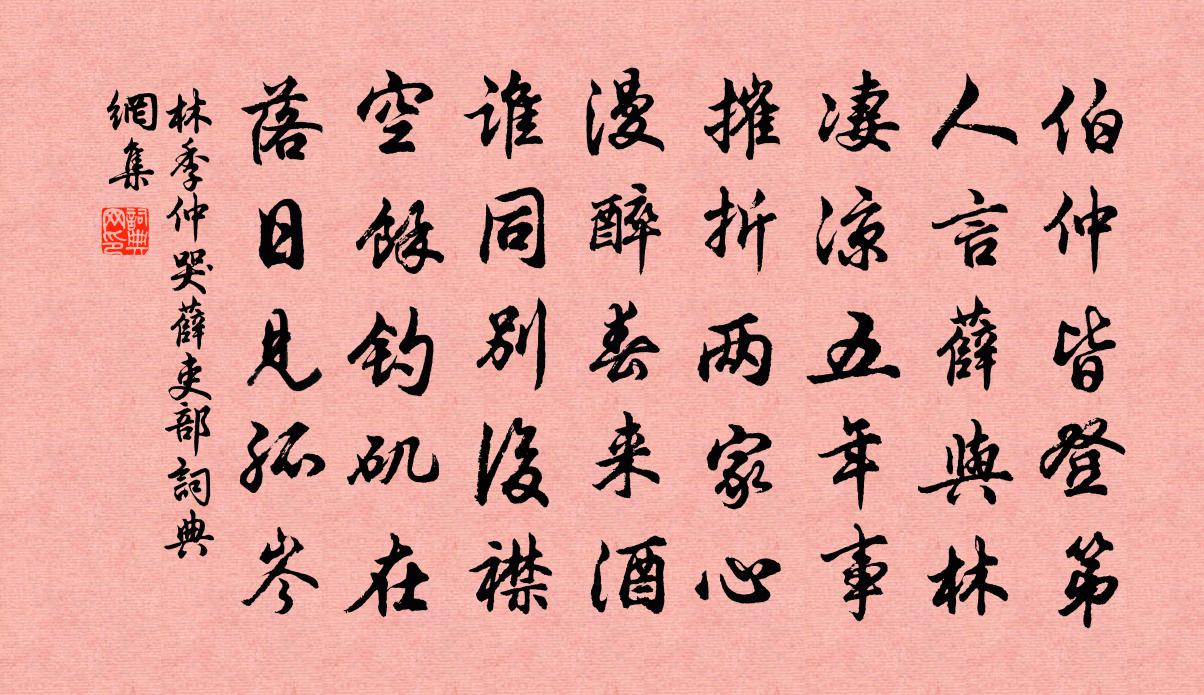 伯仲皆登第
人言薛與林
凄凉五年事
摧折两家心
漫醉春来酒
谁同别後襟
空餘钓矶在
落日見孤岑
林季仲哭薛吏部詞典
網集
詞典網印